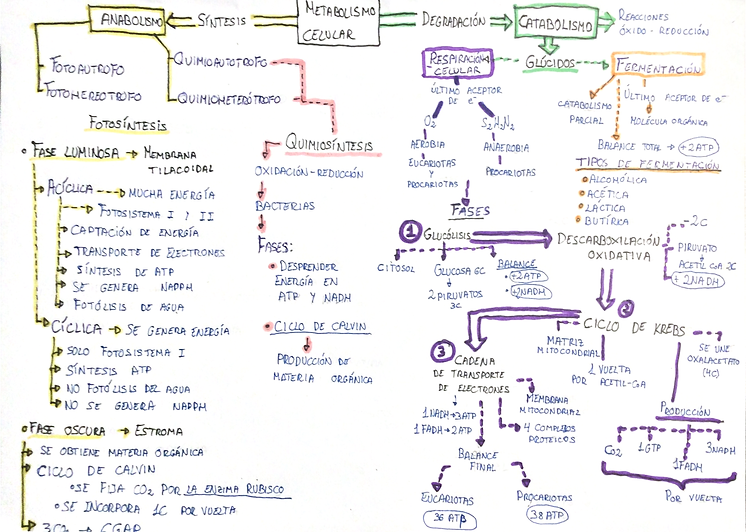 METABOLISMO
CELULAR
ANABOLISMO
SÍNTESIS
DEGRADACIÓN
CATABOLISMO
REACCIONES
ÓXIDO-REDUCCIÓN
FOTOAUTROFO
FOTOHEREOTROFO
QUIMIOAUTOTROFO
QUIMIOHETERÓTROFO
FOTOSÍNTESIS
FASE LUMINOSA → MEMBRANA
TILACOIDAL
ACÍCLICA → MUCHA ENERGÍA
FOTOSISTEMA I Y II
CAPTACIÓN DE ENERGÍA
TRANSPORTE DE ELECTRONES
SÍNTESIS DE ATP
SE GENERA NADPH
FOTÓLISIS DE AGUA
CÍCLICA → SE GENERA ENERGÍA
SOLO FOTOSISTEMA I
SÍNTESIS ATP
NO FOTÓLISIS DEL AGUA
NO SE GENERA NADPH
FASE OSCURA → ESTROMA
SE OBTIENE MATERIA ORGÁNICA
CICLO DE CALVIN
SE FIJA CO2 POR LA ENZIMA RUBISCO
SE INCORPORA 1C POR VUELTA
QUIMIOSÍNTESIS
OXIDACIÓN-REDUCCIÓN
BACTERIAS
FASES:
DESPRENDER
ENERGÍA EN
ATP Y NADH
CICLO DE CALVIN
PRODUCCIÓN DE
MATERIA ORGÁNICA
GLÚCIDOS
RESPIRACIÓN
CELULAR
ÚLTIMO ACEPTOR
DE e-
O2
AEROBIA
EUCARIOTAS
Y
PROCARIOTAS
ANAEROBIA
PROCARIOTAS
FERMENTACIÓN
CATABOLISMO
PARCIAL
ÚLTIMO ACEPTOR DE e-
MOLÉCULA ORGÁNICA
BALANCE TOTAL → +2ATP
TIPOS DE FERMENTACIÓN
ALCOHÓLICA
ACÉTICA
LÁCTICA
BUTÍRICA
FASES
1 GLUCÓLISIS
CITOSOL
GLUCOSA 6C
2 PIRUVATOS
3C
BALANCE
+2ATP
+2NADH
DESCARBOXILACIÓN
OXIDATIVA
2C
PIRUVATO
ACETIL CoA 2C
+2NADH
2
CICLO DE KREBS
MATRIZ
MITOCONDRIAL
1 VUELTA
POR ACETIL-CoA
SE UNE
OXALACETATO
(4C)
PRODUCCIÓN
CO2
1GTP
1FADH
3NADH
POR VUELTA
3
CADENA
DE TRANSPORTE
DE ELECTRONES
1NADH→3ATP
1FADH→2ATP
MEMBRANA
MITOCONDRIAL
4 COMPLEJOS
PROTEICOS
BALANCE
FINAL
EUCARIOTAS
PROCARIOTAS
38 ATP